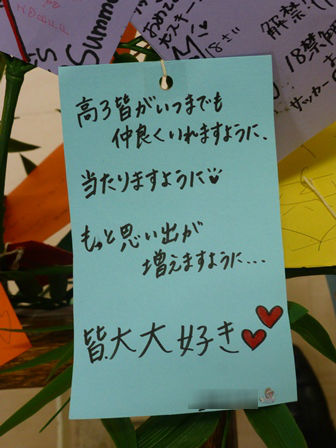 高3皆がいつまでも
仲良くいれますように、
当たりますように
もっと思い出が
増えますように...
皆大大好き
Summer
18さい
解禁!
18禁
サッカー